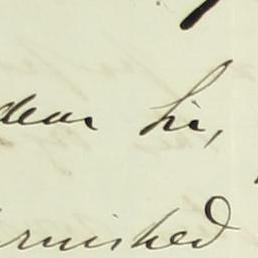 dear Sir,
urnished